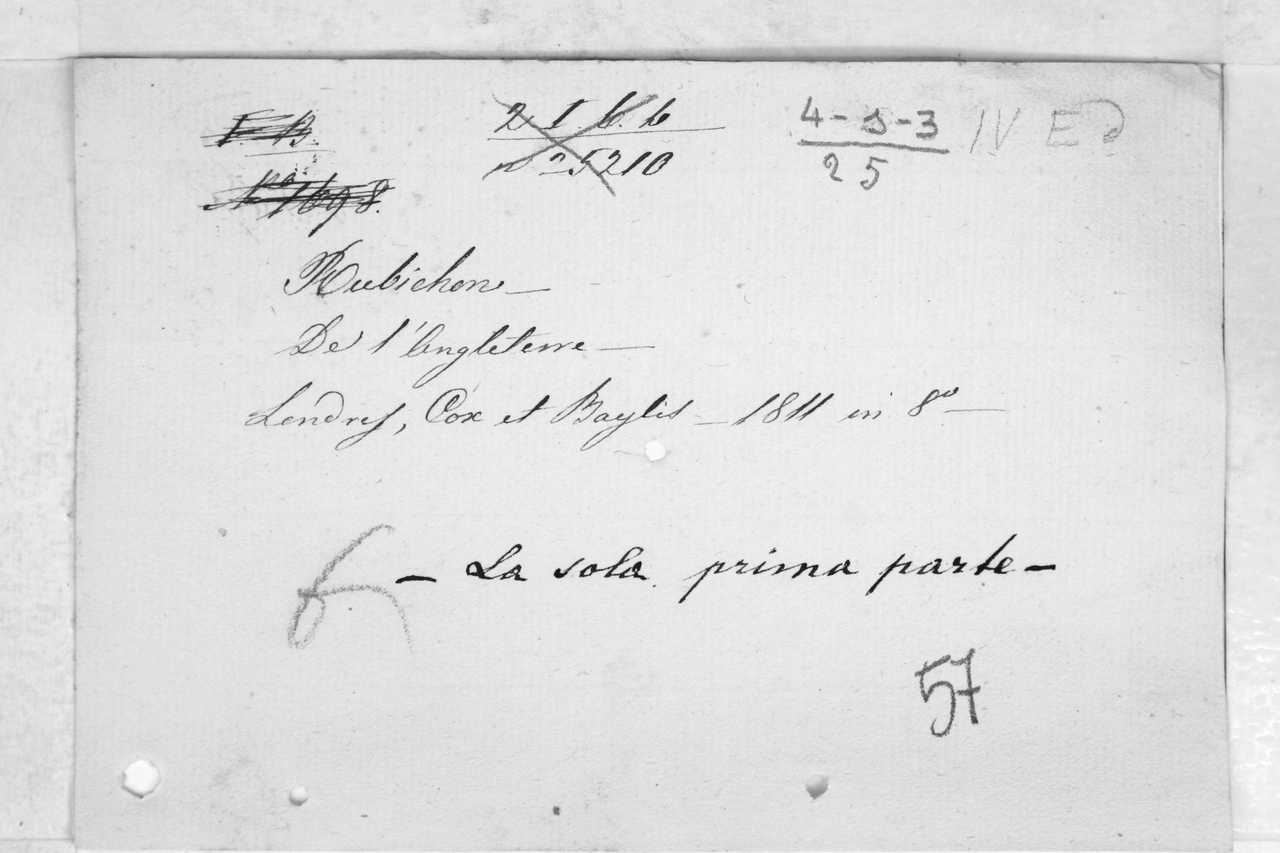 F. B.
N.º 1698.
2 I b. 6
nº 25210
4-s-3
25
IV E
Rubichon —
De l'Angleterre —
Londres, Cox et Baylis — 1811 in 8º —
— La sola prima parte —
57